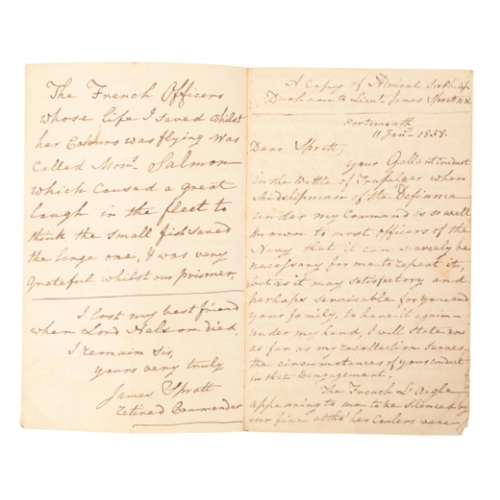 The French Officers
whose life I saved whilst
her Colours was flying was
called Monr. Salmon
which caused a great
laugh in the fleet to
think the small fish saved
the large one, I was very
grateful whilst our prisoner,
I lost my best friend
when Lord Nelson died,
I remain Sir,
yours very truly
James Spratt
retired Commander
A Copy of Admiral Sir Philip
Durham to Lieut. James Spratt R.N.
Portsmouth
11 Jany. 1838.
Dear Spratt,
your Gallant Conduct
in the Battle of Trafalgar when
Midshipman of the Defiance
under my Command is so well
known to most officers of the
Navy that it can scarcely be
necessary for me to repeat it,
but as it may satisfactory and
perhaps serviceable for you and
your family, to have it again
under my hand, I will State as
as far as my recollection serves
the circumstances of your conduct
in that Engagement.
The French L'Aigle
appearing to me to be silenced by
our fire altho' her Coulers were